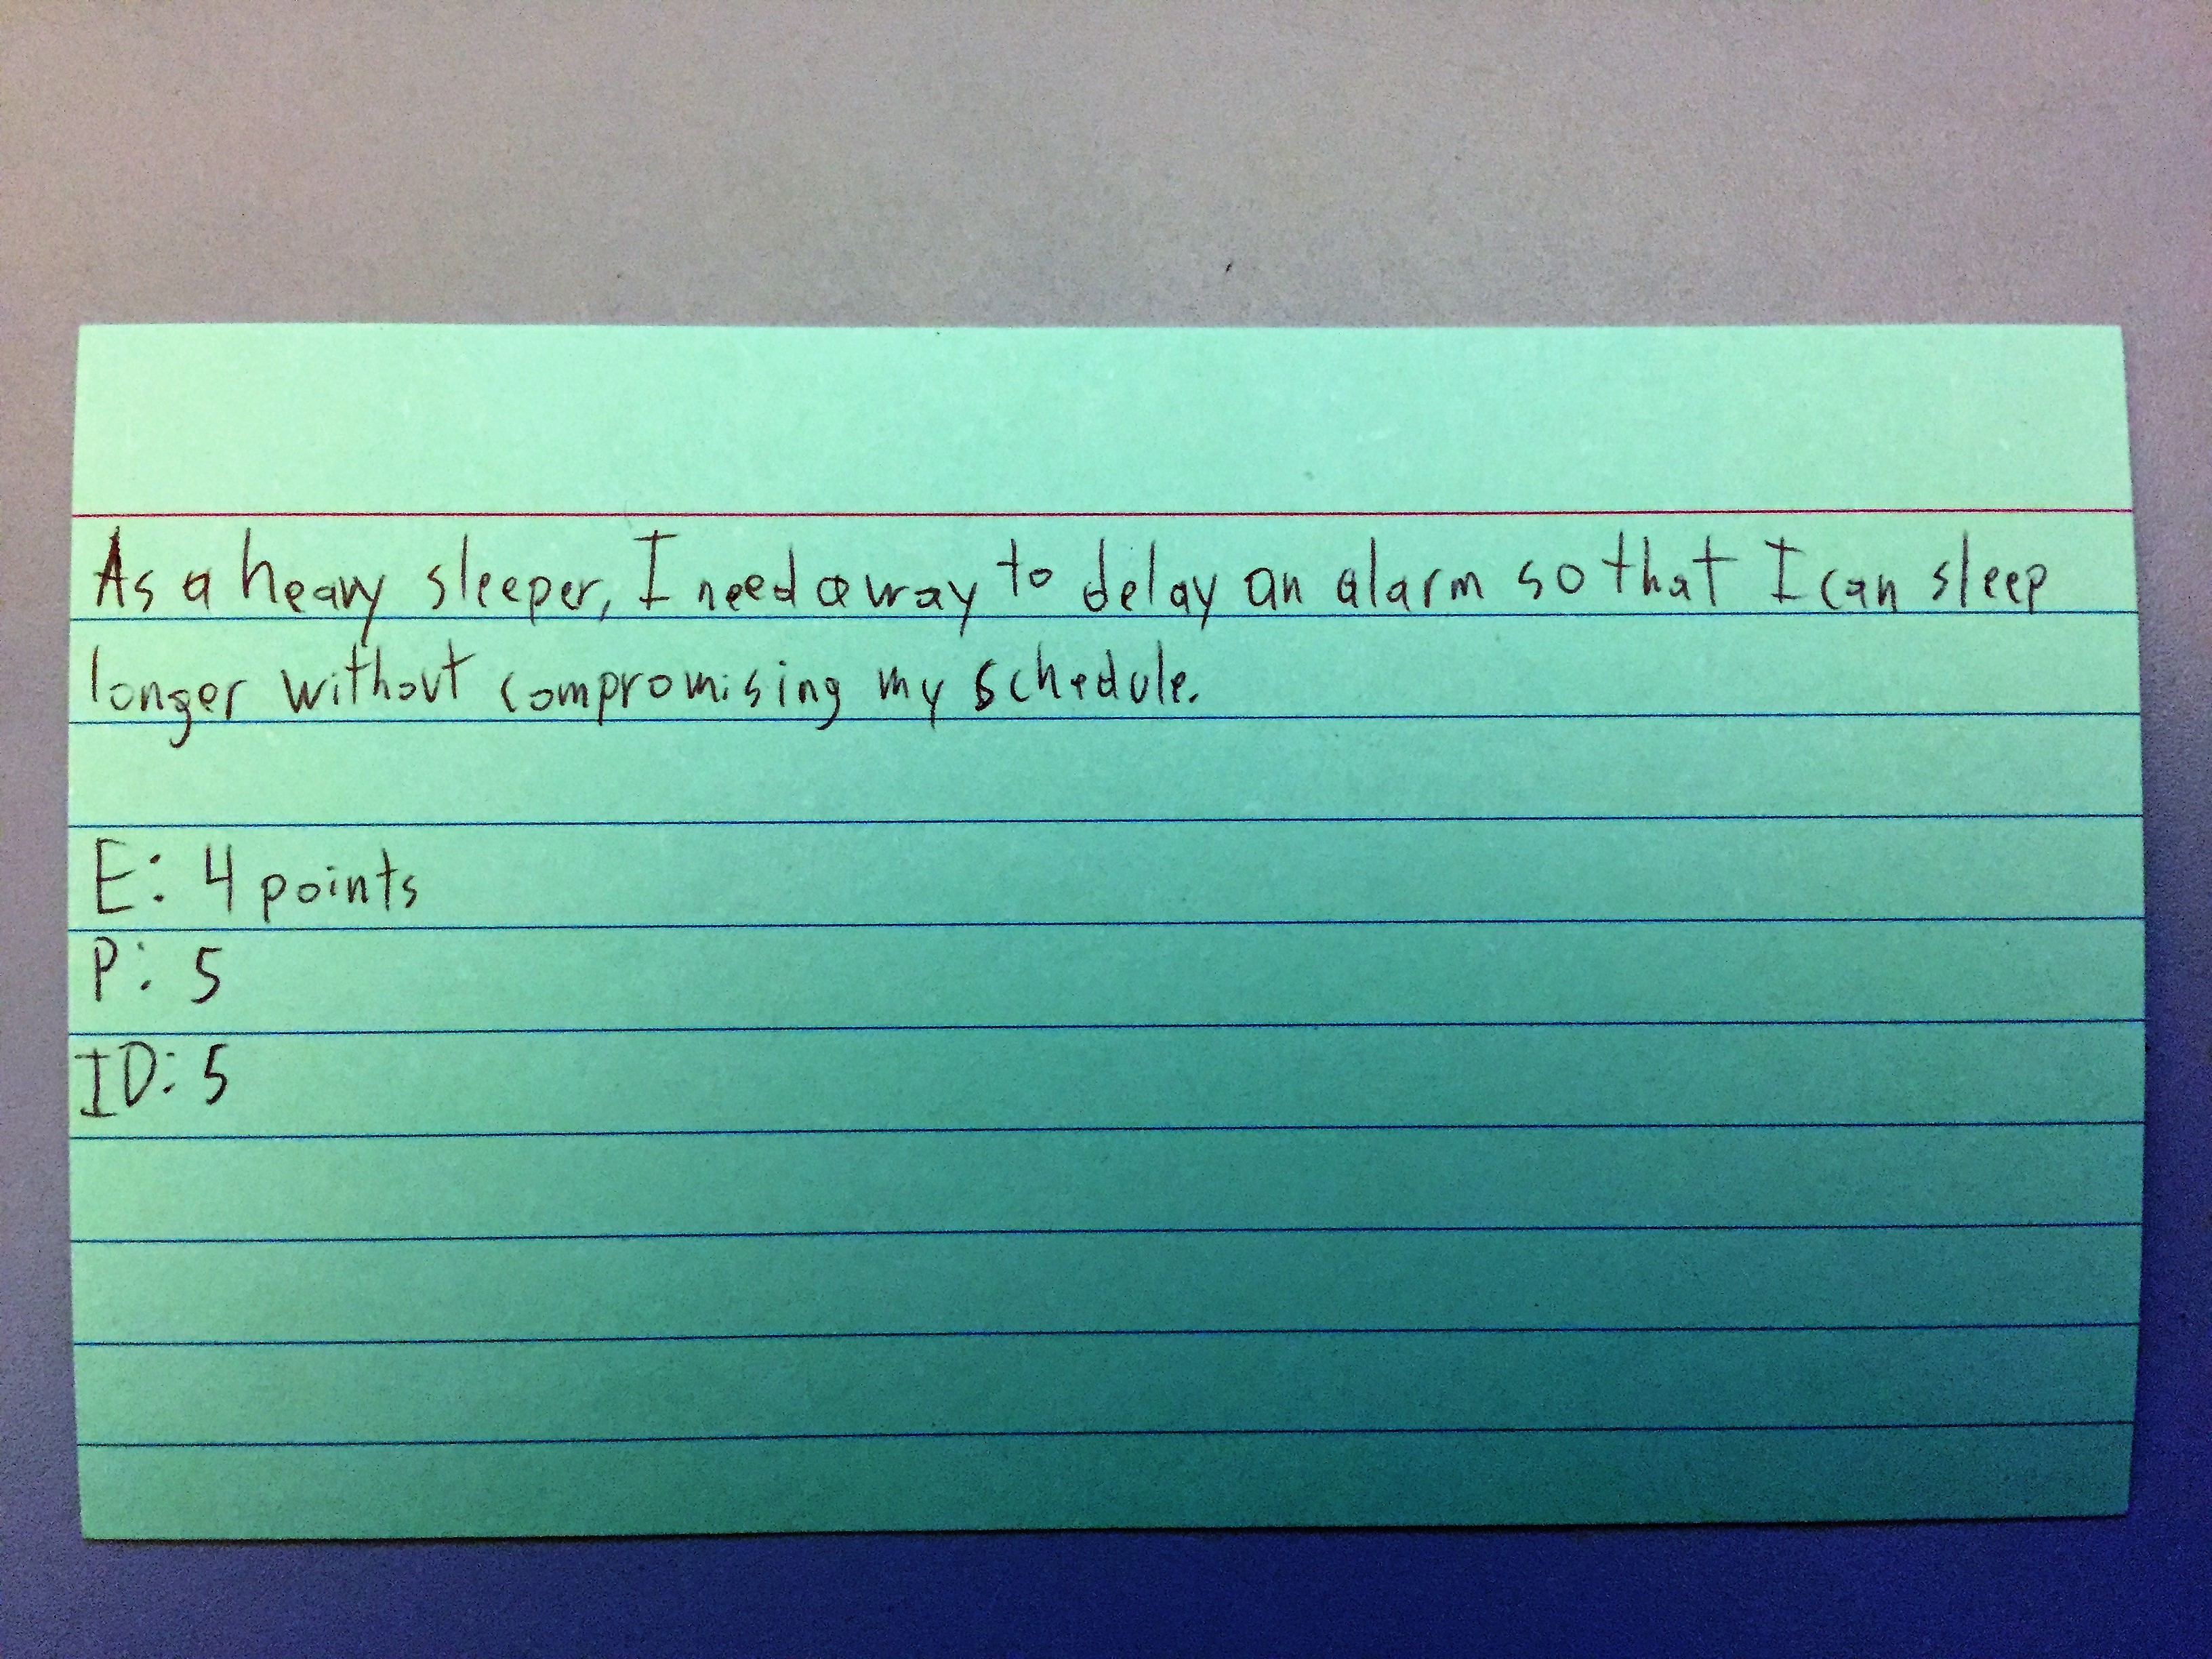 As a heavy sleeper, I need a way to delay an alarm so that I can sleep
longer without compromising my schedule.
E: 4 points
P: 5
ID: 5